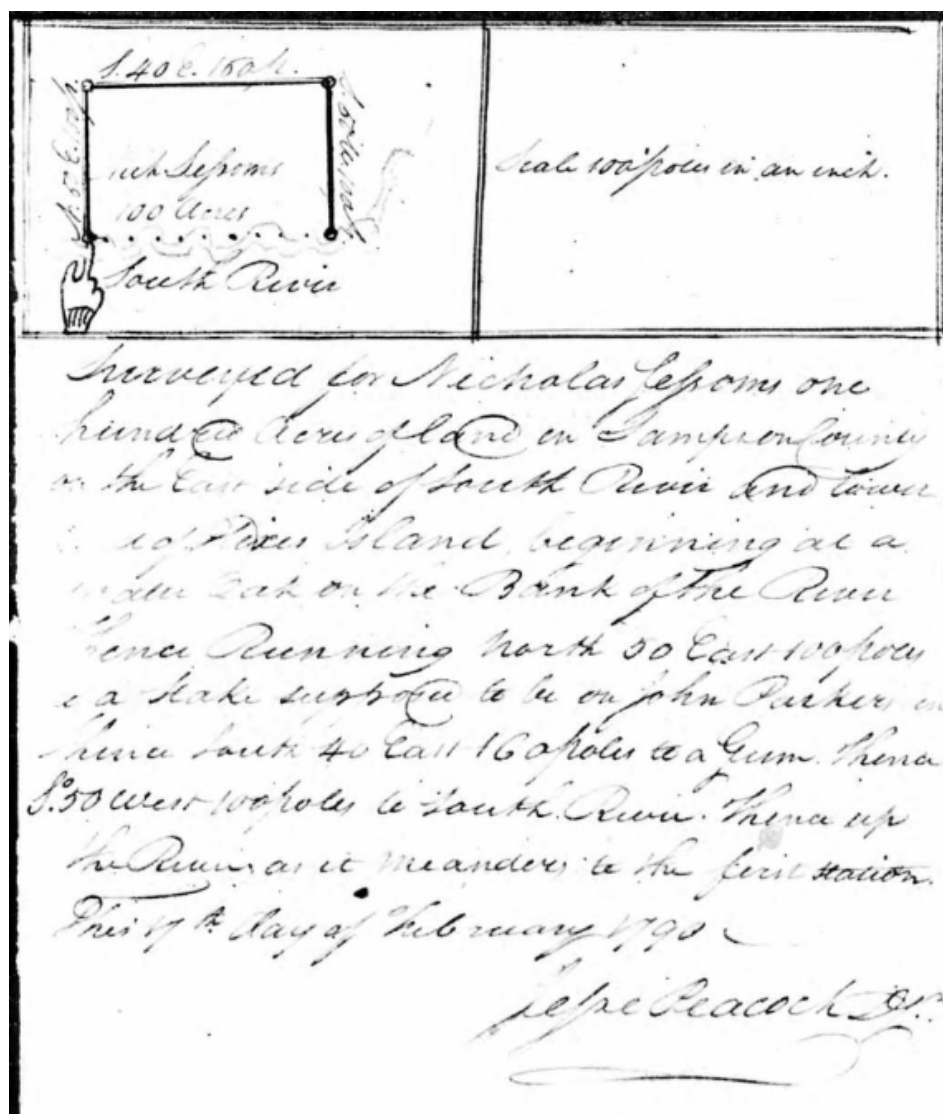 S. 40 E. 160 p.
N. 50 E. 100 p.
S. 50 W. 100 p.
Nich Sessoms
100 Acres
South River
Scale 100 poles in an inch.
Surveyed for Nicholas Sessoms one
hundred Acres of land in Sampson County
on the East side of South River and lower
of Island, beginning at a
water Oak on the Bank of the River
thence Running North 50 East 100 poles
to a stake supposed to be on John Parkers
thence South 40 East 160 poles to a Gum. thence
So. 50 West 100 poles to South River. thence up
the River as it meanders to the first station.
This 17th day of February 1790
Jesse Peacock